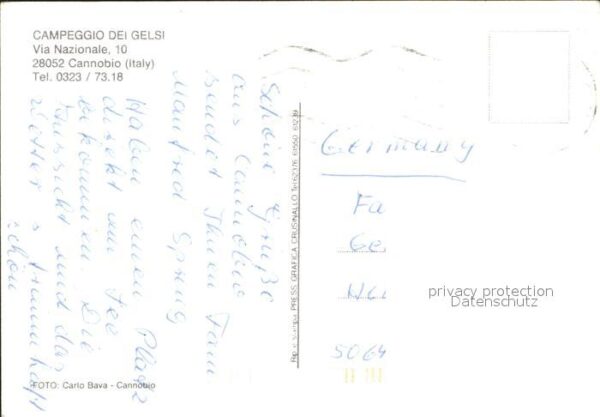 CAMPEGGIO DEI GELSI
Via Nazionale, 10
28052 Cannobio (Italy)
Tel. 0323 / 73.18
Schöne Grüße
aus Cannobio
sendet Ihnen Fam.
Manfred
Haben einen Platz
direkt am See
bekommen. Die
Aussicht und das
Wetter traumhaft
schön
FOTO: Carlo Bava - Cannobio
Rip. e stampa PRESS GRAFICA GRUSINALLO
Germany
Fa
Ge.
5064
privacy protection
Datenschutz